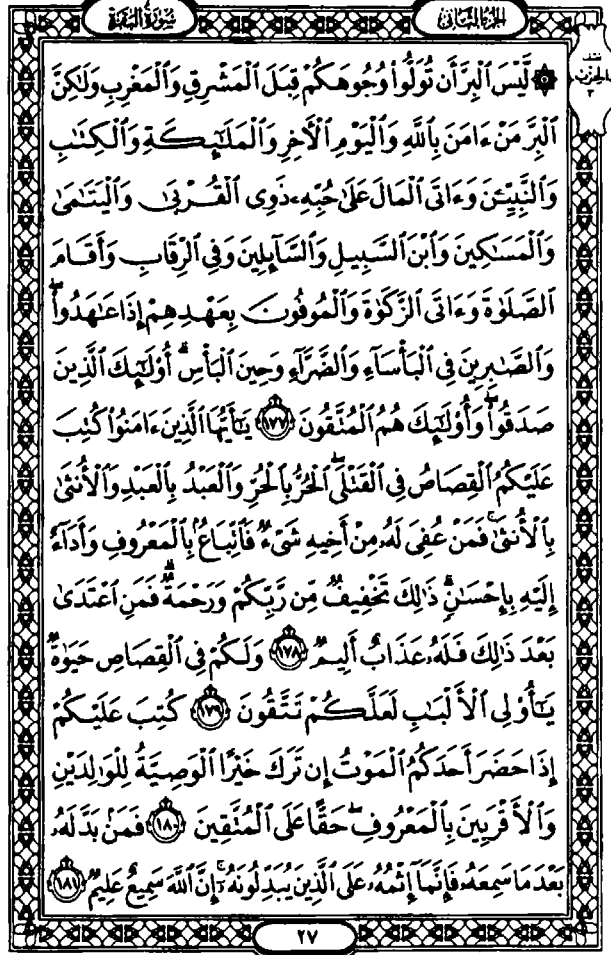 سُورَةُ البَقَرَةِ
الجُزءُ الثَّانِي
۞ لَّيْسَ ٱلْبِرَّ أَن تُوَلُّوا۟ وُجُوهَكُمْ قِبَلَ ٱلْمَشْرِقِ وَٱلْمَغْرِبِ وَلَٰكِنَّ
ٱلْبِرَّ مَنْ ءَامَنَ بِٱللَّهِ وَٱلْيَوْمِ ٱلْءَاخِرِ وَٱلْمَلَٰٓئِكَةِ وَٱلْكِتَٰبِ
وَٱلنَّبِيِّۦنَ وَءَاتَى ٱلْمَالَ عَلَىٰ حُبِّهِۦ ذَوِى ٱلْقُرْبَىٰ وَٱلْيَتَٰمَىٰ
وَٱلْمَسَٰكِينَ وَٱبْنَ ٱلسَّبِيلِ وَٱلسَّآئِلِينَ وَفِى ٱلرِّقَابِ وَأَقَامَ
ٱلصَّلَوٰةَ وَءَاتَى ٱلزَّكَوٰةَ وَٱلْمُوفُونَ بِعَهْدِهِمْ إِذَا عَٰهَدُوا۟ ۖ
وَٱلصَّٰبِرِينَ فِى ٱلْبَأْسَآءِ وَٱلضَّرَّآءِ وَحِينَ ٱلْبَأْسِ ۗ أُو۟لَٰٓئِكَ ٱلَّذِينَ
صَدَقُوا۟ ۖ وَأُو۟لَٰٓئِكَ هُمُ ٱلْمُتَّقُونَ ١٧٧ يَٰٓأَيُّهَا ٱلَّذِينَ ءَامَنُوا۟ كُتِبَ
عَلَيْكُمُ ٱلْقِصَاصُ فِى ٱلْقَتْلَى ۖ ٱلْحُرُّ بِٱلْحُرِّ وَٱلْعَبْدُ بِٱلْعَبْدِ وَٱلْأُنثَىٰ
بِٱلْأُنثَىٰ ۚ فَمَنْ عُفِىَ لَهُۥ مِنْ أَخِيهِ شَىْءٌ فَٱتِّبَاعٌۢ بِٱلْمَعْرُوفِ وَأَدَآءٌ
إِلَيْهِ بِإِحْسَٰنٍ ۗ ذَٰلِكَ تَخْفِيفٌ مِّن رَّبِّكُمْ وَرَحْمَةٌ ۗ فَمَنِ ٱعْتَدَىٰ
بَعْدَ ذَٰلِكَ فَلَهُۥ عَذَابٌ أَلِيمٌ ١٧٨ وَلَكُمْ فِى ٱلْقِصَاصِ حَيَوٰةٌ
يَٰٓأُو۟لِى ٱلْأَلْبَٰبِ لَعَلَّكُمْ تَتَّقُونَ ١٧٩ كُتِبَ عَلَيْكُمْ
إِذَا حَضَرَ أَحَدَكُمُ ٱلْمَوْتُ إِن تَرَكَ خَيْرًا ٱلْوَصِيَّةُ لِلْوَٰلِدَيْنِ
وَٱلْأَقْرَبِينَ بِٱلْمَعْرُوفِ ۖ حَقًّا عَلَى ٱلْمُتَّقِينَ ١٨٠ فَمَنۢ بَدَّلَهُۥ
بَعْدَ مَا سَمِعَهُۥ فَإِنَّمَآ إِثْمُهُۥ عَلَى ٱلَّذِينَ يُبَدِّلُونَهُۥٓ ۚ إِنَّ ٱللَّهَ سَمِيعٌ عَلِيمٌ ١٨١
٢٧